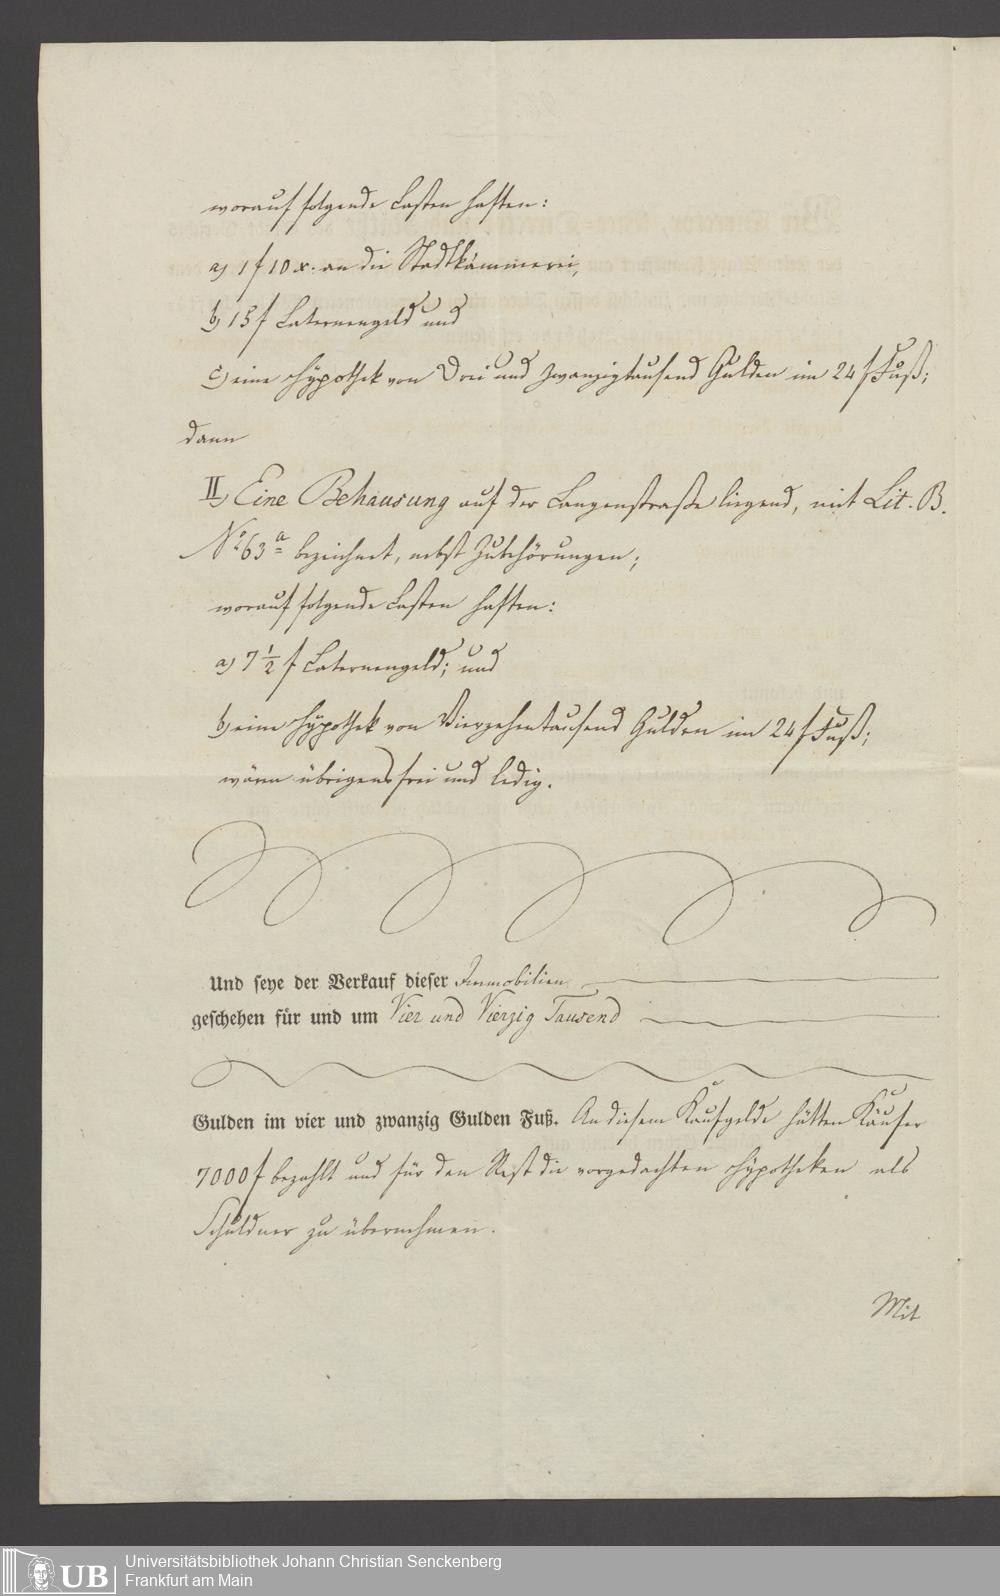 worauf folgende Lasten haften:
a) 1 f 10 x. an die Stadtkämmerei,
b) 15 f Laternengeld und
c) eine Hÿpothek von Drei und zwanzigtausend Gulden im 24 f Fuß;
dann
II, Eine Behausung auf der Langenstraße liegend, mit Lit. B.
No. 63a bezeichnet, nebst Zubehörungen;
worauf folgende Lasten haften:
a) 7 1/2 f Laternengeld; und
b) eine Hÿpothek von Vierzehentausend Gulden im 24 f Fuß;
wären übrigens frei und ledig.
Und seye der Verkauf dieser Immobilien
geschehen für und um Vier und Vierzig Tausend
Gulden im vier und zwanzig Gulden Fuß. An diesem Kaufgelde hätten Käufer
7000 f bezahlt und für den Rest die vorgedachten Hÿpotheken als
Schuldner zu übernehmen.
Mit
UB Universitätsbibliothek Johann Christian Senckenberg
Frankfurt am Main